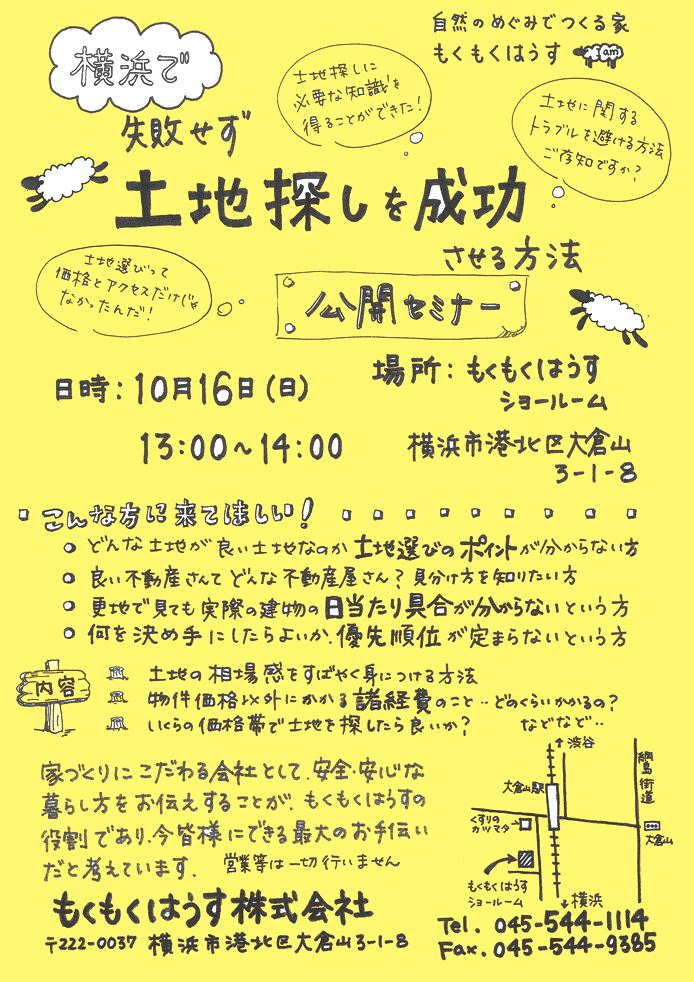 自然のめぐみでつくる家
もくもくはうす
am
横浜で
失敗せず
土地探しに
必要な知識を
得ることができた!
土地に関する
トラブルを避ける方法
ご存知ですか?
土地探しを成功
させる方法
土地選びって
価格とアクセスだけじゃ
なかったんだ!
公開セミナー
日時:10月16日(日)
13:00~14:00
場所:もくもくはうす
ショールーム
横浜市港北区大倉山
3-1-8
こんな方に来てほしい!
どんな土地が良い土地なのか土地選びのポイントが分からない方
良い不動産さんてどんな不動産屋さん?見分け方を知りたい方
更地で見ても実際の建物の日当たり具合が分からないという方
何を決め手にしたらよいか、優先順位が定まらないという方
内容
土地の相場感をすばやく身につける方法
物件価格以外にかかる諸経費のこと‥どのくらいかかるの?
いくらの価格帯で土地を探したら良いか?
などなど‥
家づくりにこだわる会社として、安全・安心な
暮らし方をお伝えすることが、もくもくはうすの
役割であり、今皆様にできる最大のお手伝い
だと考えています。
営業等は一切行いません
もくもくはうす株式会社
〒222-0037 横浜市港北区大倉山3-1-8
↑渋谷
綱島街道
大倉山駅
くすりの
カツマタ
大倉山
もくもくはうす
ショールーム
↓横浜
Tel. 045-544-1114
Fax. 045-544-9385